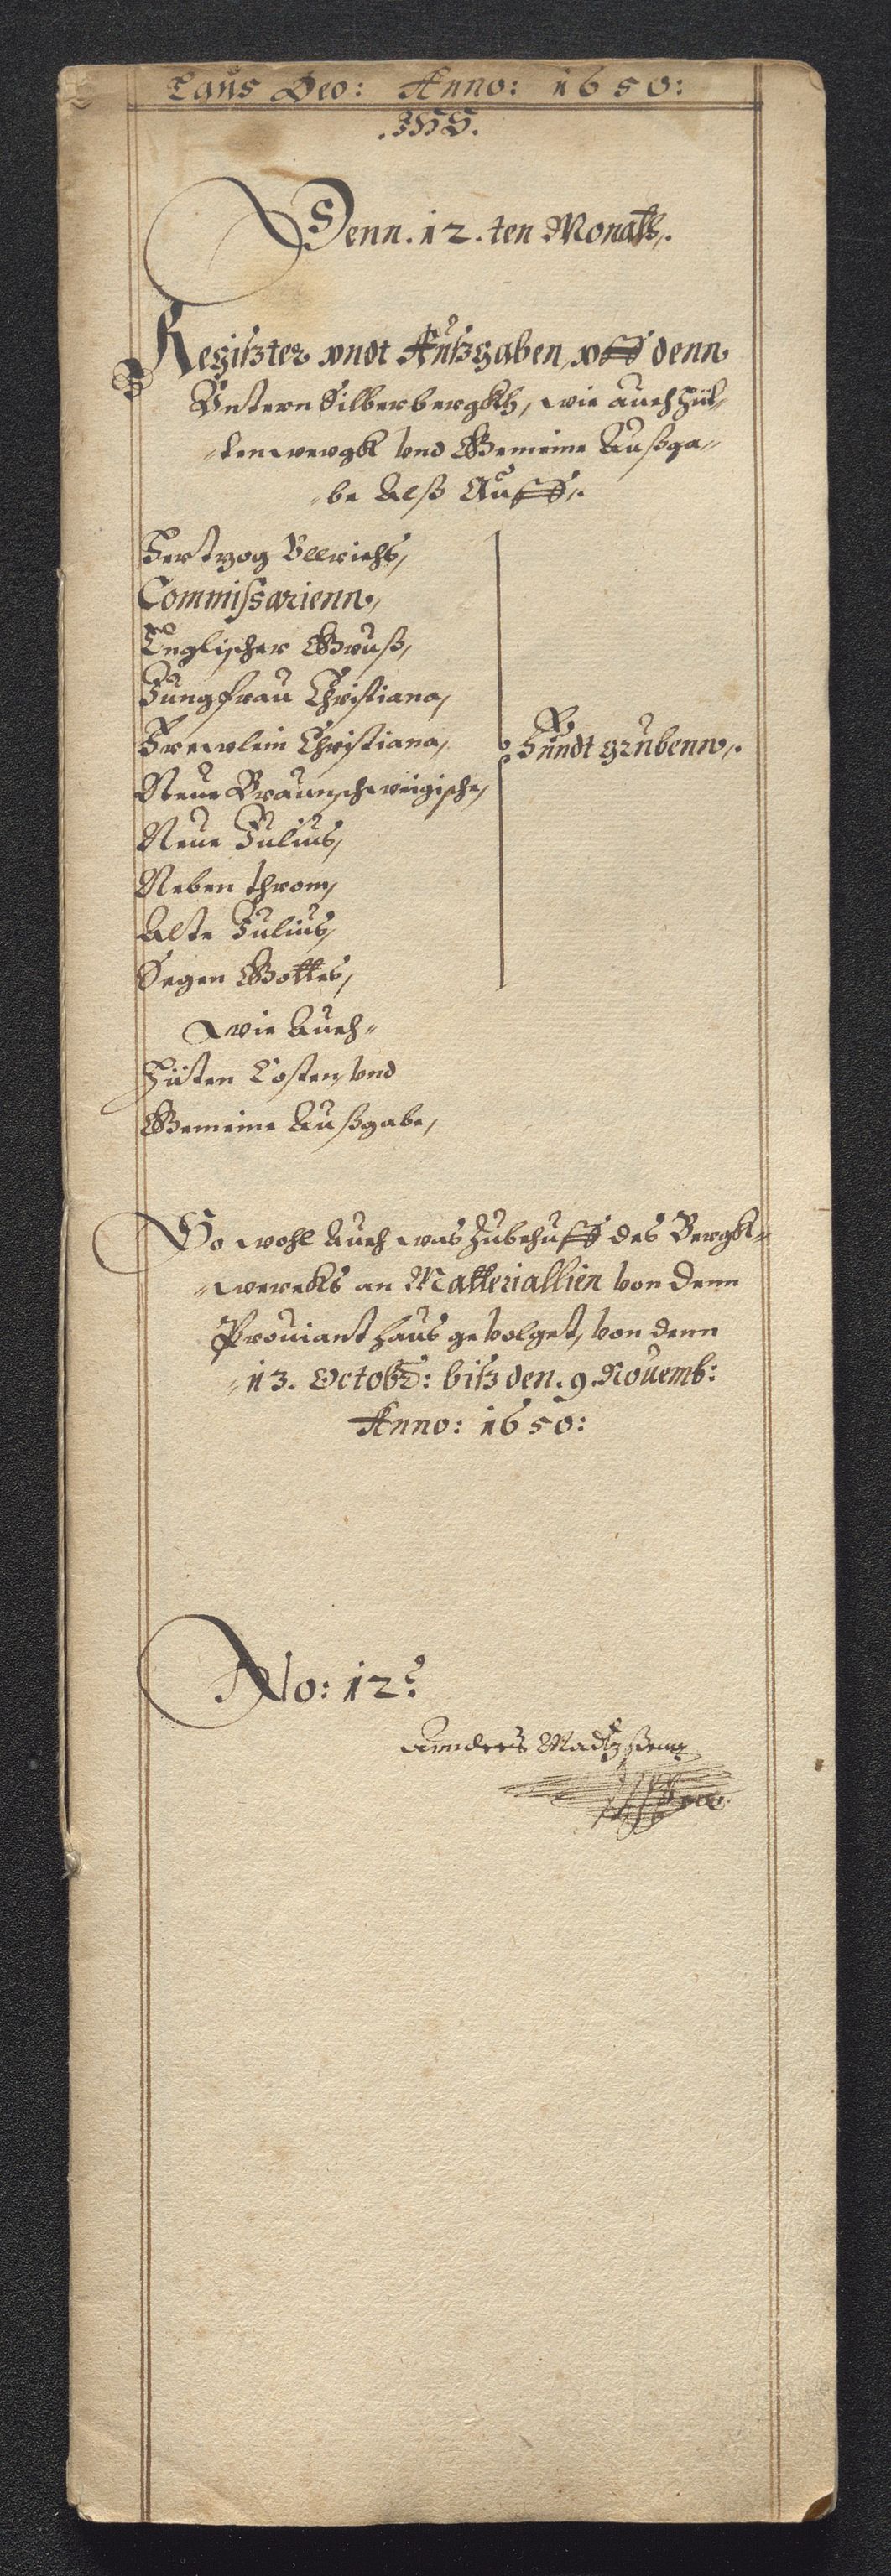 Laus Deo: Anno: 1650:
.JHS.
Denn. 12. ten Monats,.
Regißter vndt Außgaben, vff denn
Vntern Silberbergkh, wie auch hüt„
„tenwergk vnd Gemeine Außga„
„be Alß Auff,.
Hertzog Vllrichs,
Commissarienn,
Englischer Gruß,
Jungfrau Christiana,
Frewlein Christiana, Fundt grubenn,.
Neue Braunschweigische,
Neue Julius,
Neben throm,
Alte Julius,
Segen Gottes,
wie Auch„
Hüten Costen, vnd
Gemeine Außgabe,
So wohl Auch was Zubehuff des Bergk„
„wercks an Matteriallien von denn
Prouiant haus gevolget, von denn
„13. Octobr: biß den. 9. Nouemb:
Anno: 1650:
No: 12:
Anders Madtzßenn